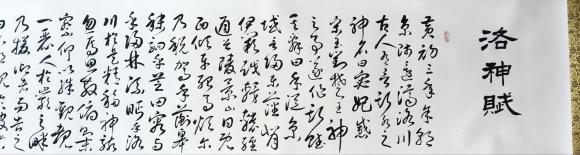 洛神賦
黃初三年余朝
京師還濟洛川
古人有言斯水之
神名曰宓妃感
宋玉對楚王神
之事遂作斯賦
其辭曰余從京
域言歸東藩背
伊闕越轘轅經
通谷陵景山日既
西傾車殆馬煩爾
乃稅駕乎蘅皋
秣駟乎芝田容與
乎陽林流眄乎洛
川於是精移神駭
忽焉思散俯則未
察仰以殊觀睹
一麗人於巖之畔
乃援御者而告之